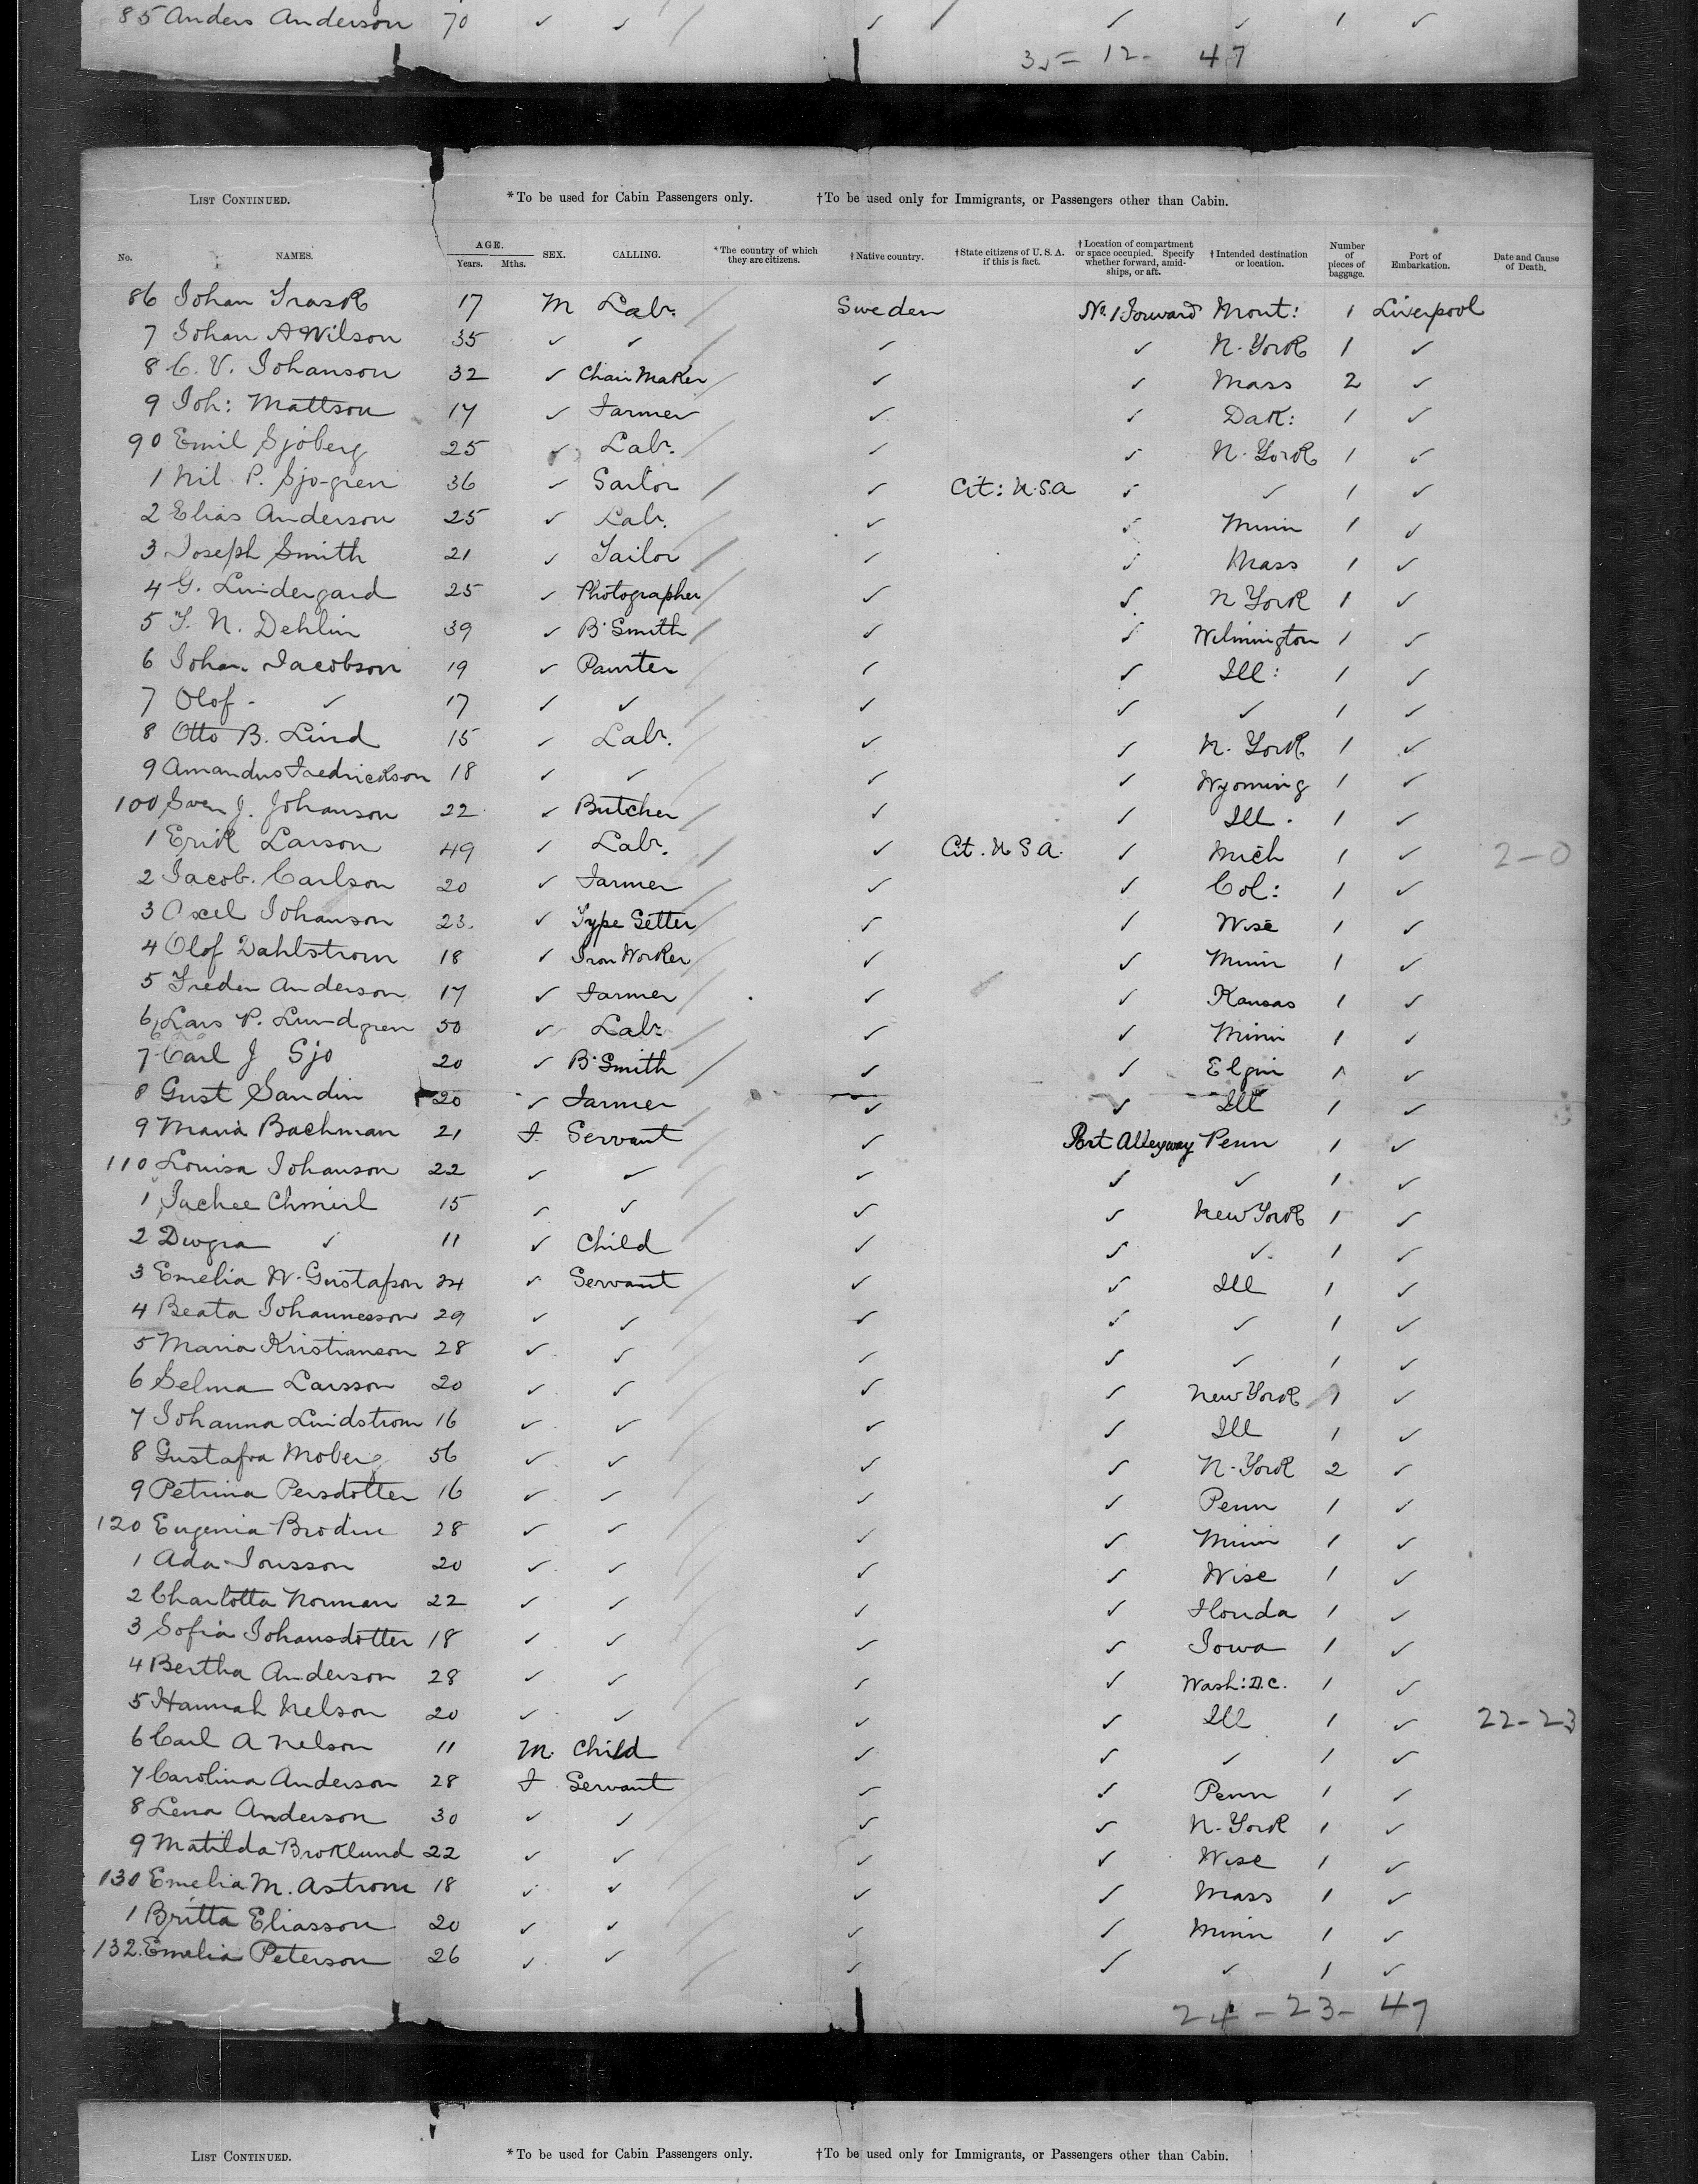 85 Anders Anderson 70 ✓ ✓ ✓ ✓ ✓ 1 ✓
35 = 12 - 47
LIST CONTINUED. *To be used for Cabin Passengers only. †To be used only for Immigrants, or Passengers other than Cabin.
No. NAMES. AGE. Years. Mths. SEX. CALLING. *The country of which they are citizens. †Native country. †State citizens of U. S. A. if this is fact. †Location of compartment or space occupied. Specify whether forward, amidships, or aft. †Intended destination or location. Number of pieces of baggage. Port of Embarkation. Date and Cause of Death.
86 Johan Trask 17 M Labr. Sweden No. 1 Forward Mont: 1 Liverpool
7 Johan A Wilson 35 ✓ ✓ ✓ ✓ N. York 1 ✓
8 C. V. Johanson 32 ✓ Chair Maker ✓ ✓ Mass 2 ✓
9 Joh: Mattson 17 ✓ Farmer ✓ ✓ Dak: 1 ✓
90 Emil Sjoberg 25 ✓ Labr. ✓ ✓ N. York 1 ✓
1 Nil P. Sjo-gren 36 ✓ Sailor ✓ Cit: U.S.A ✓ ✓ 1 ✓
2 Elias Anderson 25 ✓ Labr. ✓ ✓ Minn 1 ✓
3 Joseph Smith 21 ✓ Tailor ✓ ✓ Mass 1 ✓
4 G. Lindergard 25 ✓ Photographer ✓ ✓ N York 1 ✓
5 J. N. Dehlin 39 ✓ B. Smith ✓ ✓ Wilmington 1 ✓
6 Johan Jacobson 19 ✓ Painter ✓ ✓ Ill: 1 ✓
7 Olof - ✓ 17 ✓ ✓ ✓ ✓ ✓ 1 ✓
8 Otto B. Lind 15 ✓ Labr. ✓ ✓ N. York 1 ✓
9 Amandus Fredrickson 18 ✓ ✓ ✓ ✓ Wyoming 1 ✓
100 Sven J. Johanson 22 ✓ Butcher ✓ ✓ Ill. 1 ✓
1 Erik Larson 49 ✓ Labr. ✓ Cit. U S A. ✓ Mich 1 ✓ 2-0
2 Jacob. Carlson 20 ✓ Farmer ✓ ✓ Col: 1 ✓
3 Axel Johanson 23. ✓ Type Setter ✓ ✓ Wisc 1 ✓
4 Olof Dahlstrom 18 ✓ Iron Worker ✓ ✓ Minn 1 ✓
5 Freden Anderson 17 ✓ Farmer ✓ ✓ Kansas 1 ✓
6 Lars P. Lundgren 50 ✓ Labr. ✓ ✓ Minn 1 ✓
7 Carl J Sjo 20 ✓ B. Smith ✓ ✓ Elgin 1 ✓
8 Gust Sandin 20 ✓ Farmer ✓ ✓ Ill 1 ✓
9 Maria Bachman 21 F Servant ✓ Port Alleyway Penn 1 ✓
110 Louisa Johanson 22 ✓ ✓ ✓ ✓ ✓ 1 ✓
1 Chmirl 15 ✓ ✓ ✓ ✓ New York 1 ✓
2 ✓ 11 ✓ Child ✓ ✓ ✓ 1 ✓
3 Emelia W. Gustafson 24 ✓ Servant ✓ ✓ Ill 1 ✓
4 Beata Johannesson 29 ✓ ✓ ✓ ✓ ✓ 1 ✓
5 Maria Kristianson 28 ✓ ✓ ✓ ✓ ✓ 1 ✓
6 Selma Larsson 20 ✓ ✓ ✓ ✓ New York 1 ✓
7 Johanna Lindstrom 16 ✓ ✓ ✓ ✓ Ill 1 ✓
8 Gustafva Moberg 56 ✓ ✓ ✓ ✓ N. York 2 ✓
9 Petrina Persdotter 16 ✓ ✓ ✓ ✓ Penn 1 ✓
120 Eugenia Brodin 28 ✓ ✓ ✓ ✓ Minn 1 ✓
1 Ada Jonsson 20 ✓ ✓ ✓ ✓ Wisc 1 ✓
2 Charlotta Norman 22 ✓ ✓ ✓ ✓ Florida 1 ✓
3 Sofia Johansdotter 18 ✓ ✓ ✓ ✓ Iowa 1 ✓
4 Bertha Anderson 28 ✓ ✓ ✓ ✓ Wash: D.C. 1 ✓
5 Hannah Nelson 20 ✓ ✓ ✓ ✓ Ill 1 ✓ 22-23
6 Carl A Nelson 11 M. Child ✓ ✓ ✓ 1 ✓
7 Carolina Anderson 28 F Servant ✓ ✓ Penn 1 ✓
8 Lena Anderson 30 ✓ ✓ ✓ ✓ N. York 1 ✓
9 Matilda Broklund 22 ✓ ✓ ✓ ✓ Wisc 1 ✓
130 Emelia M. Astrom 18 ✓ ✓ ✓ ✓ Mass 1 ✓
1 Britta Eliasson 20 ✓ ✓ ✓ ✓ Minn 1 ✓
132. Emelia Peterson 26 ✓ ✓ ✓ ✓ ✓ 1 ✓
24 - 23 - 47
LIST CONTINUED. *To be used for Cabin Passengers only. †To be used only for Immigrants, or Passengers other than Cabin.